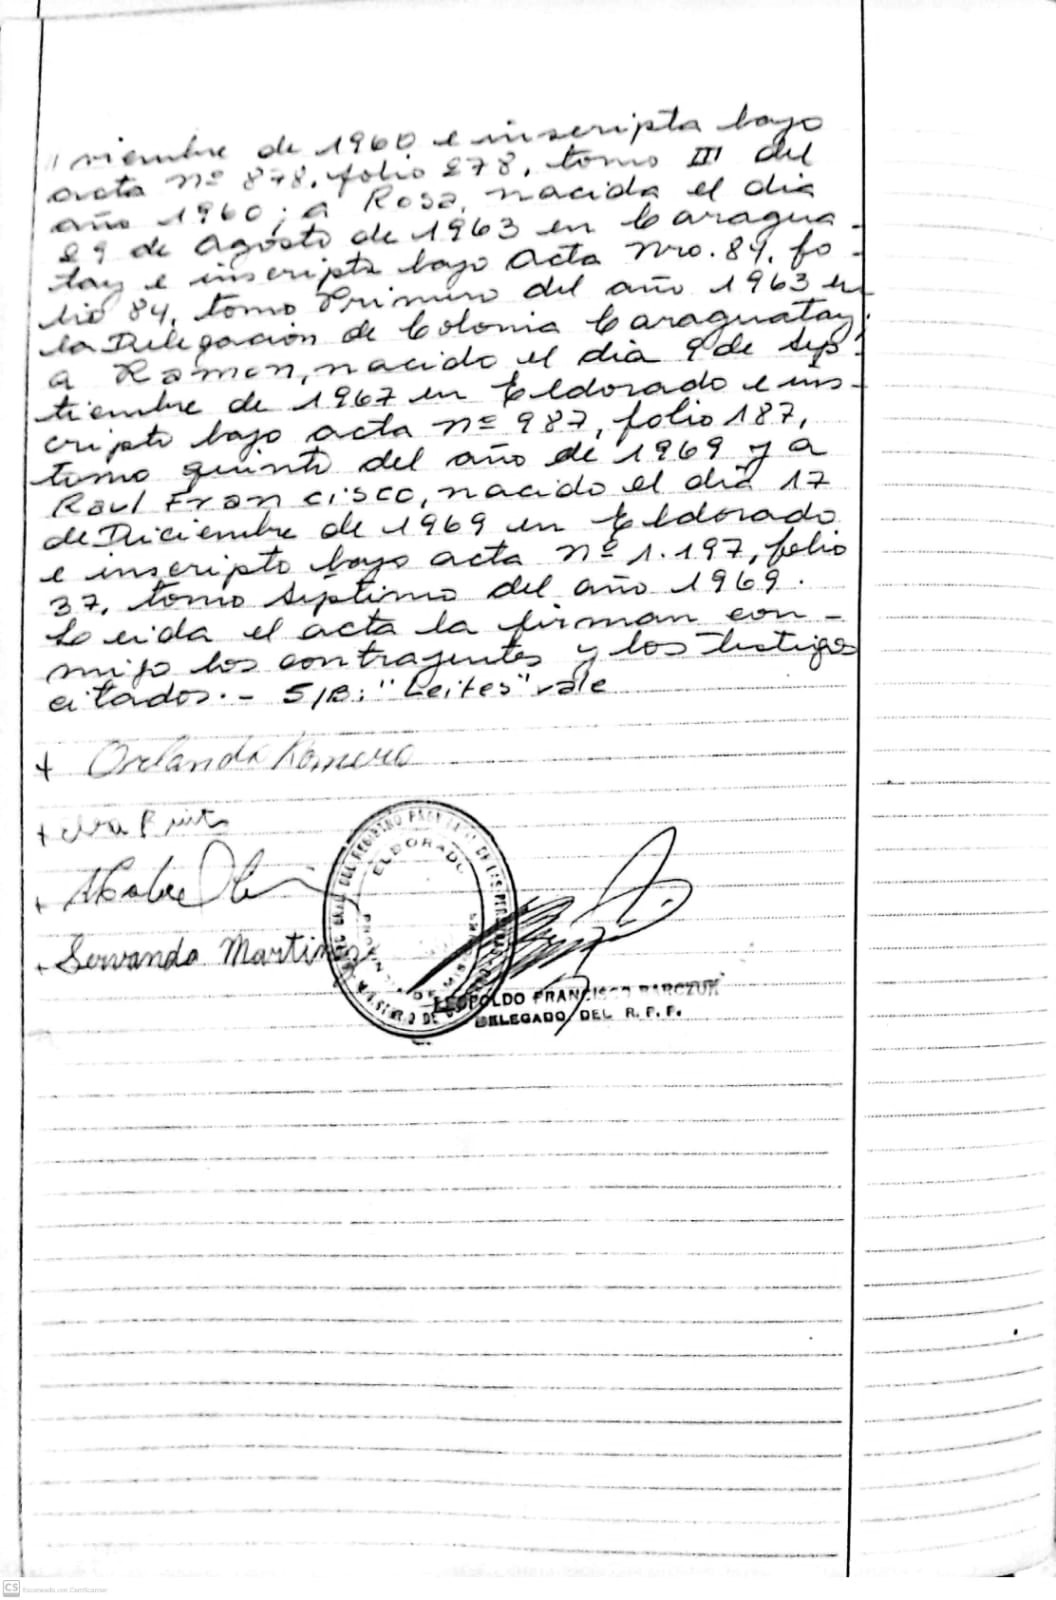 // viembre de 1960 e inscripta bajo
acta Nº 878, folio 278, tomo III del
año 1960; a Rosa, nacida el dia
29 de Agosto de 1963 en Caragua-
tay e inscripta bajo Acta Nro. 84, fo-
lio 84, tomo Primero del año 1963 en
la Delegación de Colonia Caraguatay;
a Ramon, nacido el dia 9 de Sep-
tiembre de 1967 en Eldorado e ins-
cripto bajo acta nº 987, folio 187,
tomo quinto del año de 1969 y a
Raul Francisco, nacido el dia 17
de Diciembre de 1969 en Eldorado
e inscripto bajo acta Nº 1.197, folio
37, tomo séptimo del año 1969.
Leida el acta la firman con-
migo los contrayentes y los testigos
citados.- S/B: "Leites" vale
+ Orlando Romero
+
+
+ Servando Martinez
ELDORADO
PROVINCIA DE MISIONES
LEOPOLDO FRANCISCO BARCZUK
DELEGADO DEL R. P. P.
CS Escaneado con CamScanner